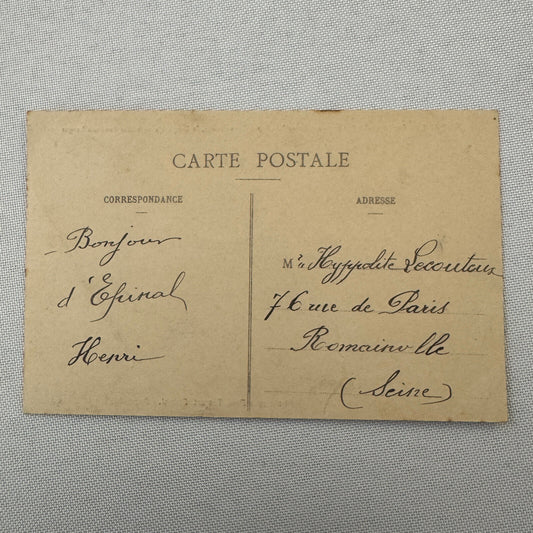 CARTE POSTALE
CORRESPONDANCE
ADRESSE
Bonjour
d'Epinal
Henri
Mr Hyppolite Lecouteux
76 rue de Paris
Romainville
(Seine)